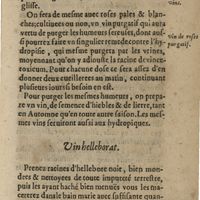 glisse.
On fera de mesme auec roses pales & blan-
ches, cultiuees ou non, vn vin purgatif qui aura
vertu de purger les humeurs sereuses, dont aus-
si pourrez faire vn singulier remede contre l'hy-
dropisie, qui mesme purgera par les veines,
moyennant qu'on y adiouste la racine de vince-
toxicum. Pour chacune dose se sera assez d'en
donner deux cueillerees au matin, continuant
plusieurs iours si besoin est.
Pour purger les mesmes humeurs, on prepa-
re vn vin, de semence d'hiebles & de lierre, tant
en Automne qu'en toute autre saison. Les mes-
mes vins seruiront aussi aux hydropiques.
vins.
Vin de roses
purgatif.
Vin helleborat.
Prenez racines d'hellebore noir, bien mon-
dees & nettoyees de toute impureté terrestre,
puis les ayant haché bien menuës vous les ma-
cererez dans le bain marie auec suffisante quan-